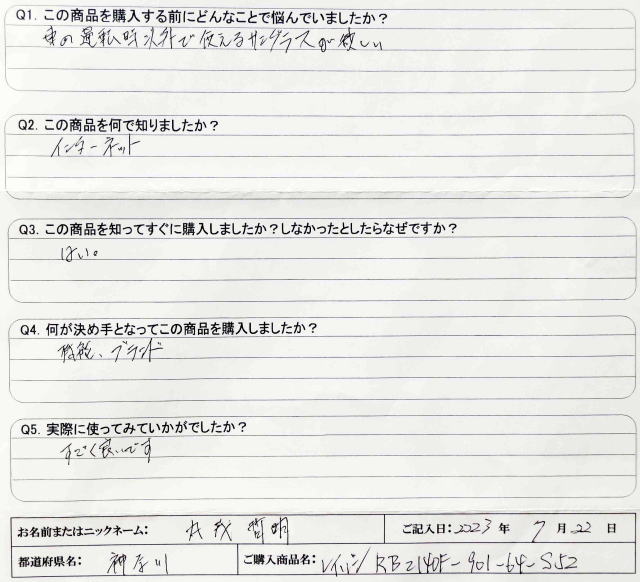 Q1. この商品を購入する前にどんなことで悩んでいましたか？
車の運転時以外で使えるサングラスが欲しい
Q2. この商品を何で知りましたか？
インターネット
Q3. この商品を知ってすぐに購入しましたか？しなかったとしたらなぜですか？
はい。
Q4. 何が決め手となってこの商品を購入しましたか？
機能、ブランド
Q5. 実際に使ってみていかがでしたか？
すごく良いです
お名前またはニックネーム： 哲明 ご記入日：2023 年 7 月 22 日
都道府県名： 神奈川 ご購入商品名：レイバン RB2140F-901-64-S52